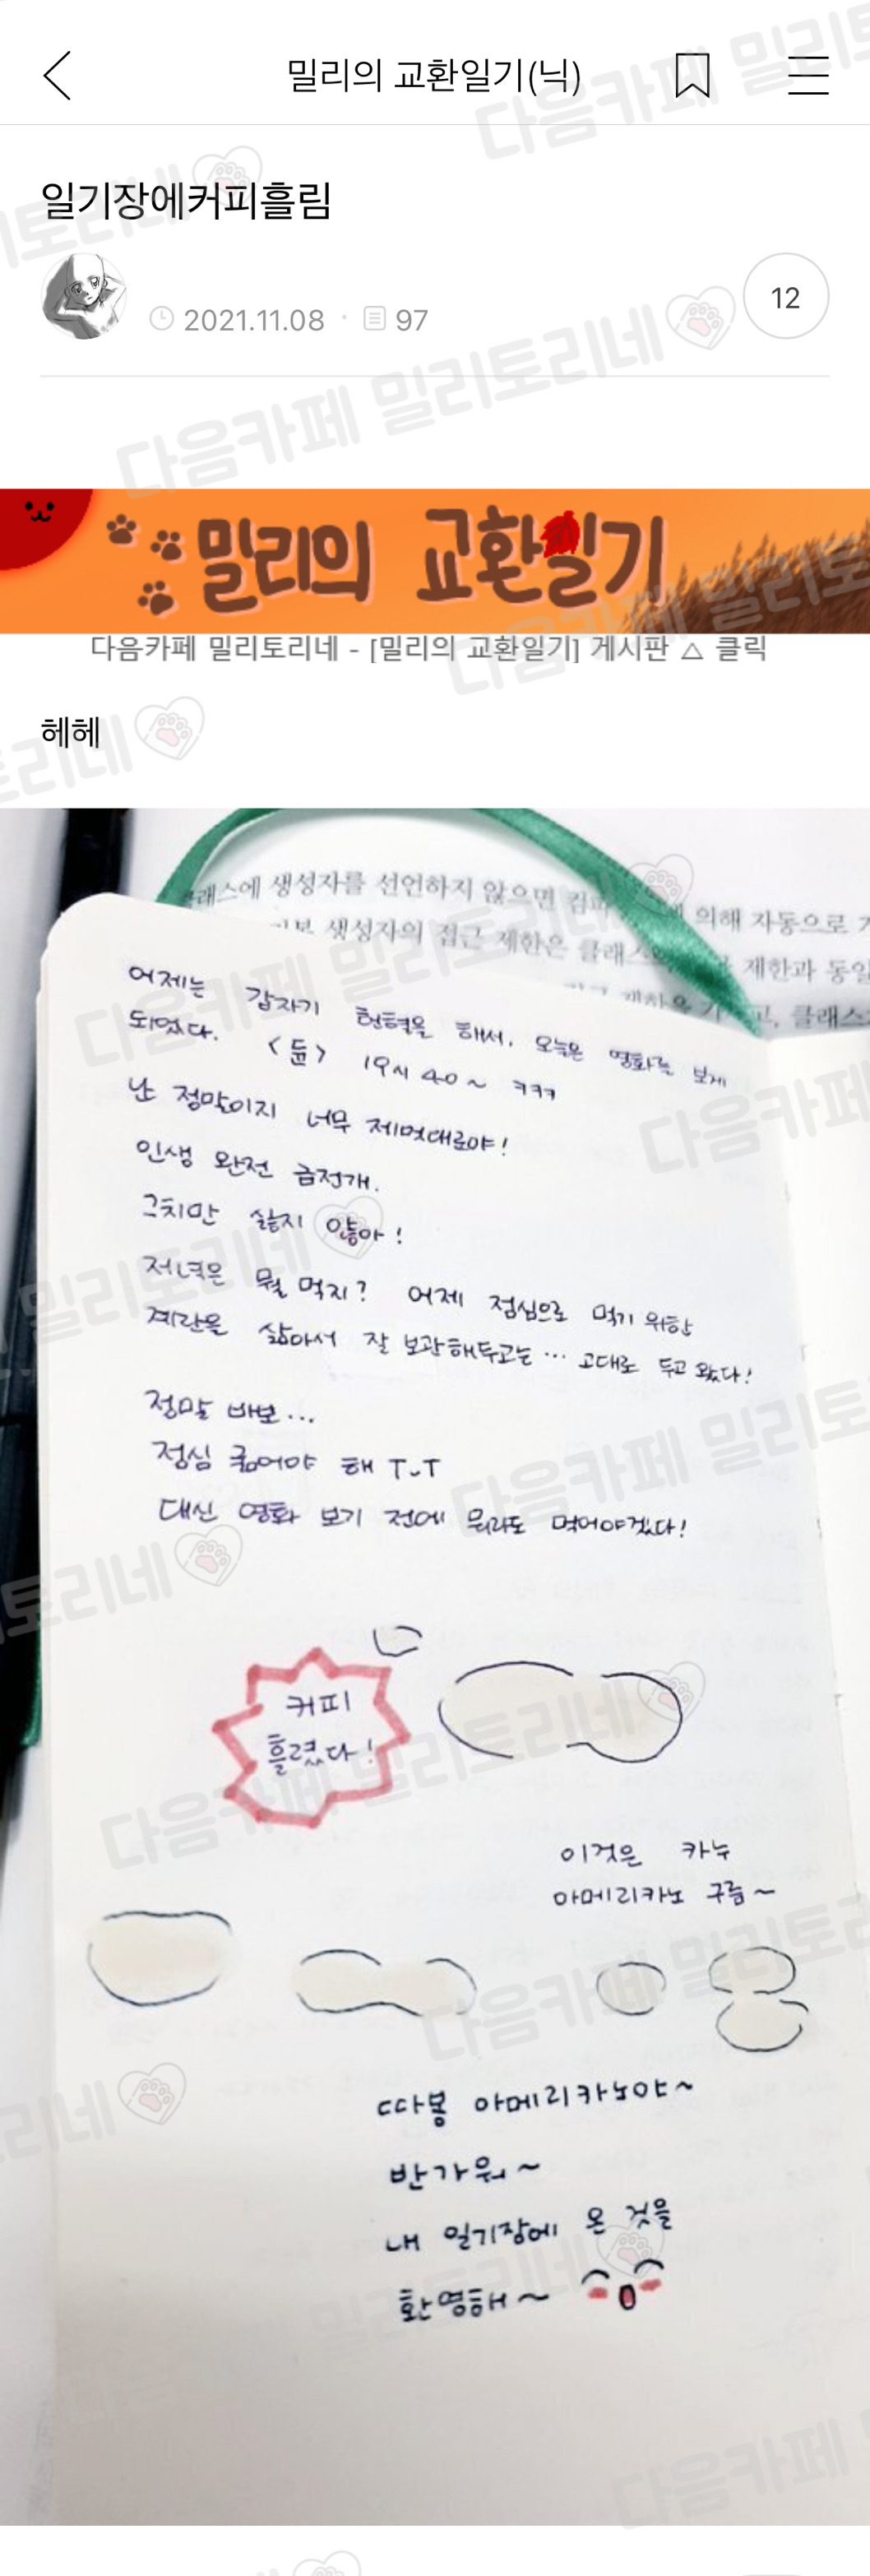 밀리의 교환일기(닉)
일기장에커피흘림
2021.11.08 · 97
12
밀리의 교환일기
다음카페 밀리토리네 - [밀리의 교환일기] 게시판 △ 클릭
헤헤
클래스에 생성자를 선언하지 않으면 의해 자동으로
생성자의 접근 제한은 제한과 동일
클래스
어제는 갑자기 헌혈을 해서, 오늘은 영화를 보게
되었다. <듄> 19시 40~ ㅋㅋㅋ
난 정말이지 너무 제멋대로야!
인생 완전 급전개.
그치만 싫지 않아!
저녁은 뭘 먹지? 어제 점심으로 먹기 위한
계란을 삶아서 잘 보관해두고는… 고대로 두고 왔다!
정말 바보…
점심 굶어야 해 T^T
대신 영화 보기 전에 뭐라도 먹어야겠다!
커피
흘렸다!
이것은 카누
아메리카노 구름~
따봉 아메리카노야~
반가워~
내 일기장에 온 것을
환영해~
다음카페 밀리토리네